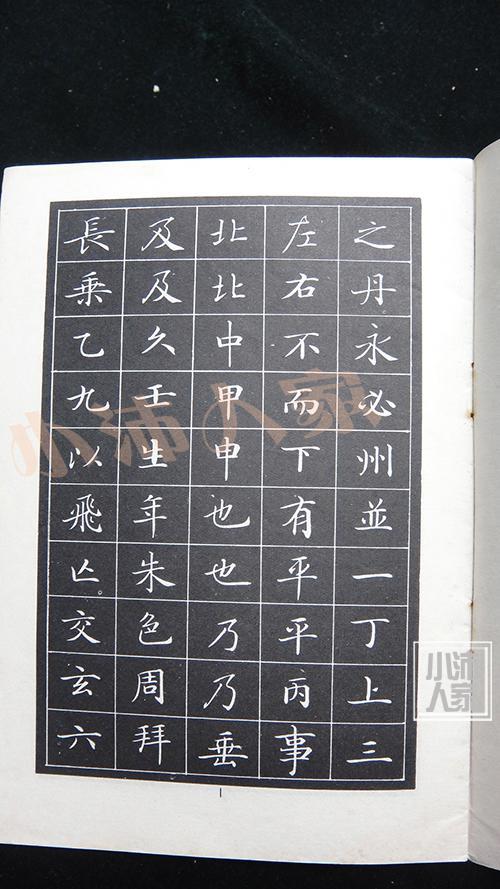 之丹永必州並一丁上三
左右不而下有平平丙事
北北中甲申也也乃乃垂
及及久壬生年朱色周拜
長乗乙九以飛亾交玄六
1
小沛人家
小沛人家